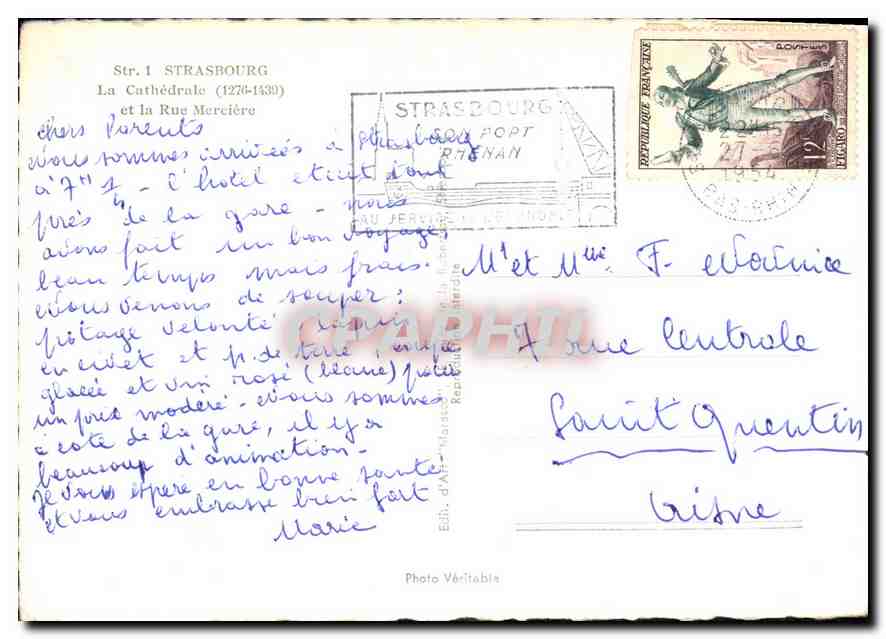 Str. 1 STRASBOURG
La Cathédrale (1276-1439)
et la Rue Mercière
chers Parents
Nous sommes arrivées à Strasbourg
à 7H 1 - l'hôtel était tout
près de la gare - nous
avons fait un bon voyage,
beau temps mais frais.
Nous venons de souper:
potage velouté, lapin
en civet et p. de terre, coupe
glacée et vin rosé (blanc) pour
un prix modéré - Nous sommes
à coté de la gare, il y a
beaucoup d'animation -
Je vous espère en bonne santé
et vous embrasse bien fort
Marie
STRASBOURG
PORT
RHENAN
AU SERVICE DE L'ECONOMIE
REPUBLIQUE FRANÇAISE
POSTES
12F
FIGARO
27
1954
BAS-RHIN
Mr et Mme F.
7 rue Centrale
Saint Quentin
Aisne
Edit. d'Art
Reproduction interdite
CPAPHIL
Photo Véritable